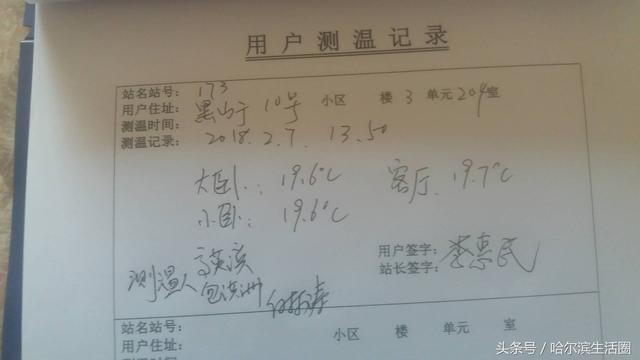 用户测温记录
站名站号： 173
用户住址： 黑山 10号 小区 楼 3 单元 204室
测温时间：
测温记录： 2018.2.7. 13.50
大卧： 19.6℃ 客厅. 19.7℃
小卧： 19.6℃
用户签字：
站长签字： 李惠民
测温人
站名站号：
用户住址： 小区 楼 单元 室
测温时间：
头条号／哈尔滨生活圈